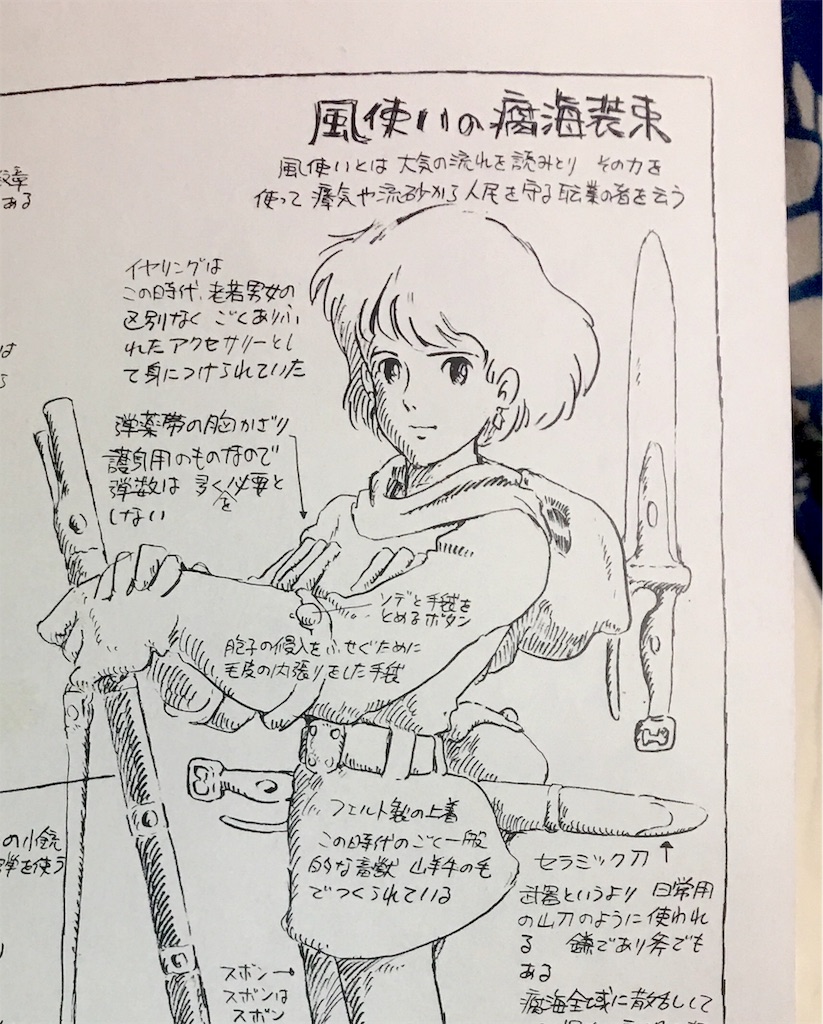 風使いの腐海装束
風使いとは 大気の流れを読みとり その力を
使って 瘴気や流砂から人民を守る職業の者を云う
ある
イヤリングは
この時代、老若男女の
区別なく ごくありふ
れたアクセサリーとし
て身につけられていた
弾薬帯の胸かざり
護身用のものなので
弾数は 多くを必要と
しない
ソデと手袋を
とめるボタン
胞子の侵入をふせぐために
毛皮の内張りをした手袋
フェルト製の上着
この時代のごく一般
的な着獣 山羊牛の毛
でつくられている
セラミック刀
武器というより 日常用
の山刀のように使われ
る 鎌であり斧でも
ある
腐海全域に散在して
の小銃
弾を使う
ズボン
ズボンは
ズボン